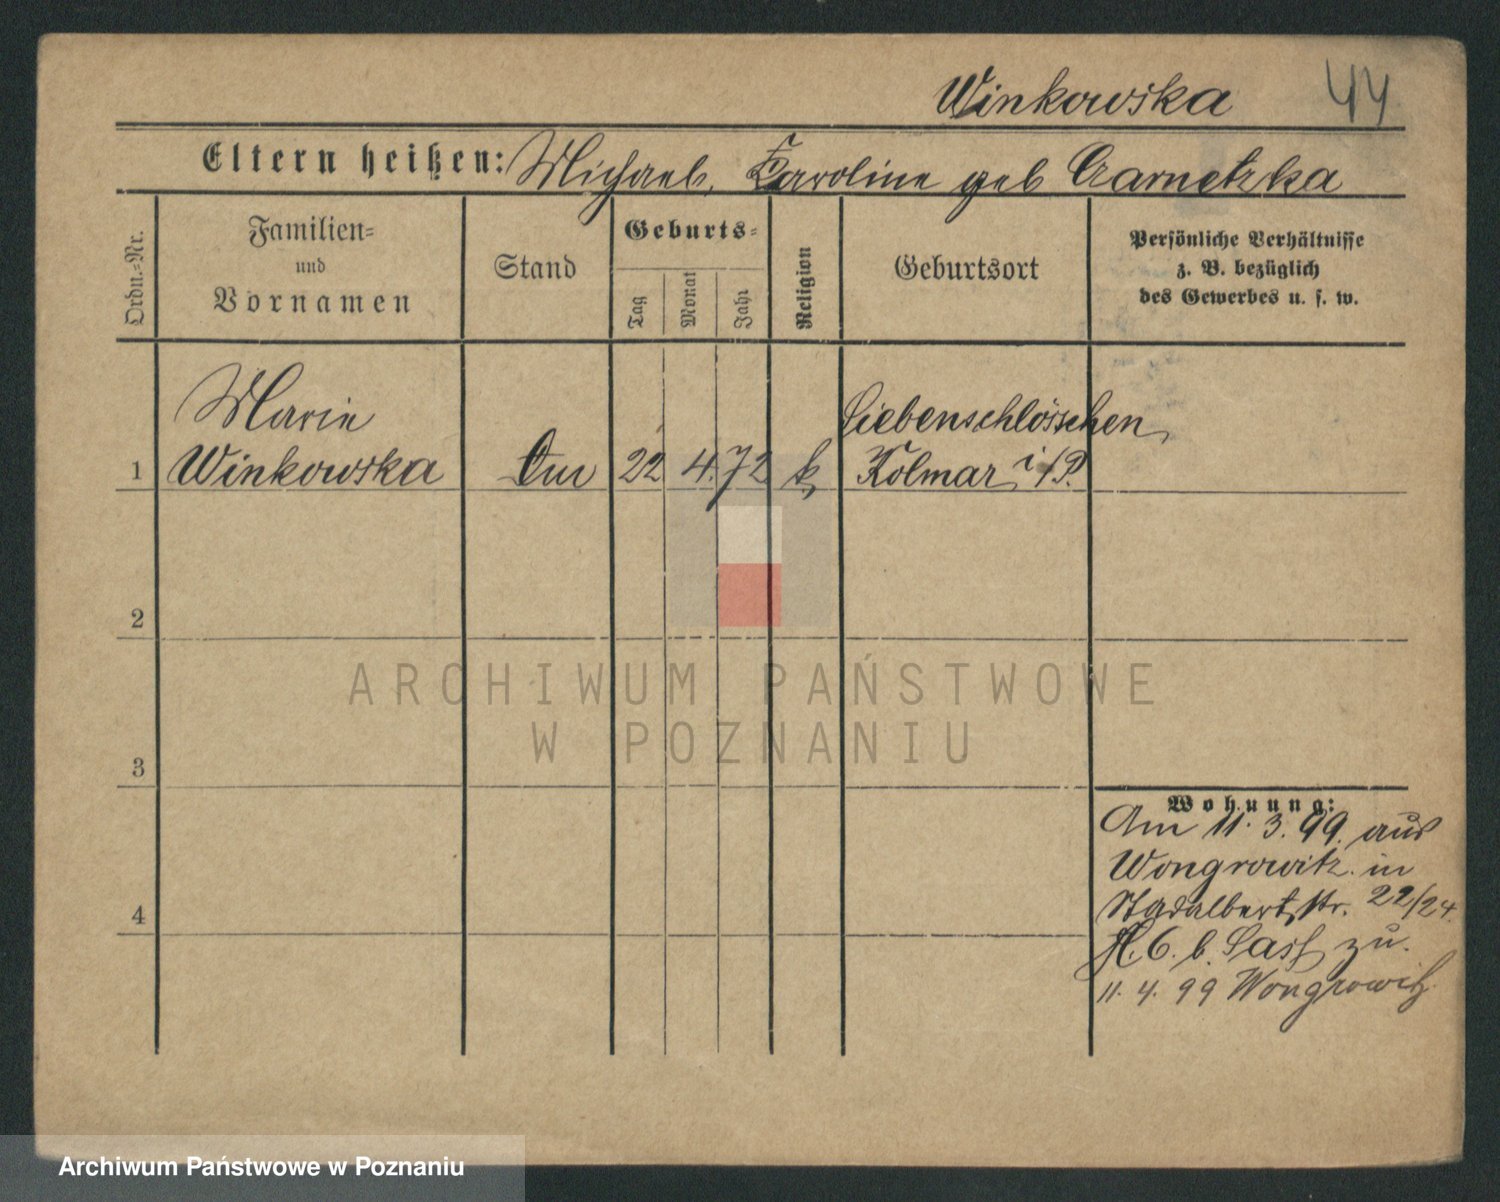 Winkowska
44
Eltern heißen: Michael, Karoline geb Czarnetzka
Ordn.-Nr.
Familien-
und
Vornamen
Stand
Geburts-
Tag
Monat
Jahr
Religion
Geburtsort
Persönliche Verhältnisse
z. B. bezüglich
des Gewerbes u. s. w.
Marie
1 Winkowska
22 4. 72 k
Liebenschlösschen
Kolmar i/P.
2
3
4
Wohnung:
Am 11. 3. 99. aus
Wongrowitz. in
str. 22/24.
H. b. zu.
11. 4. 99 Wongrowitz
ARCHIWUM PAŃSTWOWE
W POZNANIU
Archiwum Państwowe w Poznaniu